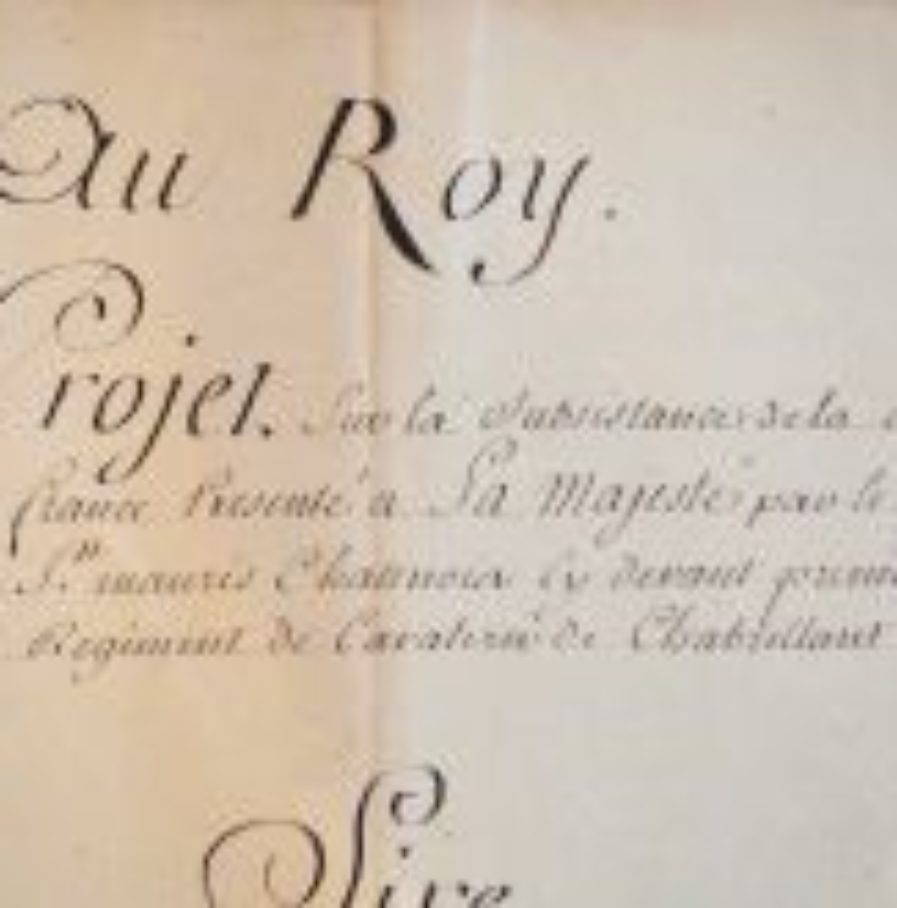 Au Roy.
Projet. Sur la Subsistance de la
france Presenté a Sa Majesté par le
Sr. mauris Cy devant
Regiment de Cavalerie de Chabrillant
Sire